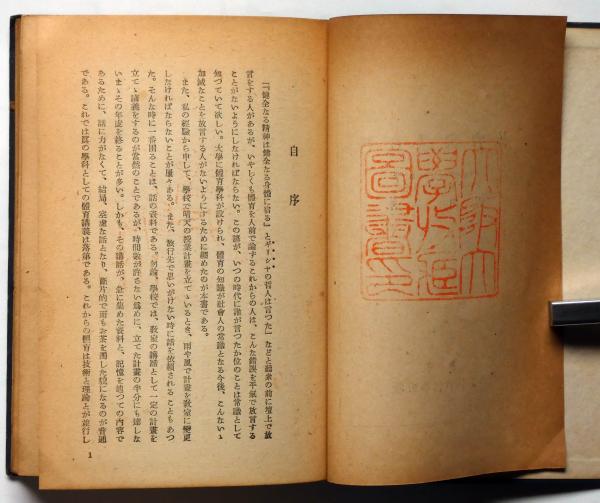 自序
『健全なる精神は健全なる身體に宿る』とギーシヤの哲人は言つた」などと聽衆の前に壇上で放
言をする人があるが、いやしくも體育を人前で論ずるこれからの人は、こんな錯誤を平氣で放言する
ことがないようにしたければならない。この語が、いつの時代に誰が言つたか位のことは常識として
知づていて欲しい。大學に體育學科が設けられ、體育の知識が社會人の常識となる今後、こんないゝ
加減なことを放言する人がないようにするために纒めたのが本書である。
また、私の經驗から申して、學校で晴天の授業計畫を立てゝいるとき、雨や風で計畫を教室に變更
したければならないことが屢々ある。また、旅行先で思いがけない時に話を依頼されることもあつ
た。そんな時に一番困ることは、話の資料である。勿論、學校では、教室の講話として一定の計畫を
立てゝ講義をするのが當然のことであるが、時間數が許さない爲めに、立てた計畫の半分にも達しな
いまゝその年度を終ることが多い。しかも、その講話が、急に集めた資料と、記憶を辿つての内容で
あるために、話に力がなくて、結局、空虚な話となり、斷片的で而もお茶を濁した貌になるのが普通
である。これでは眞の學科としての體育講義は落第である。これからの體育は技術と理論とが並行し
1